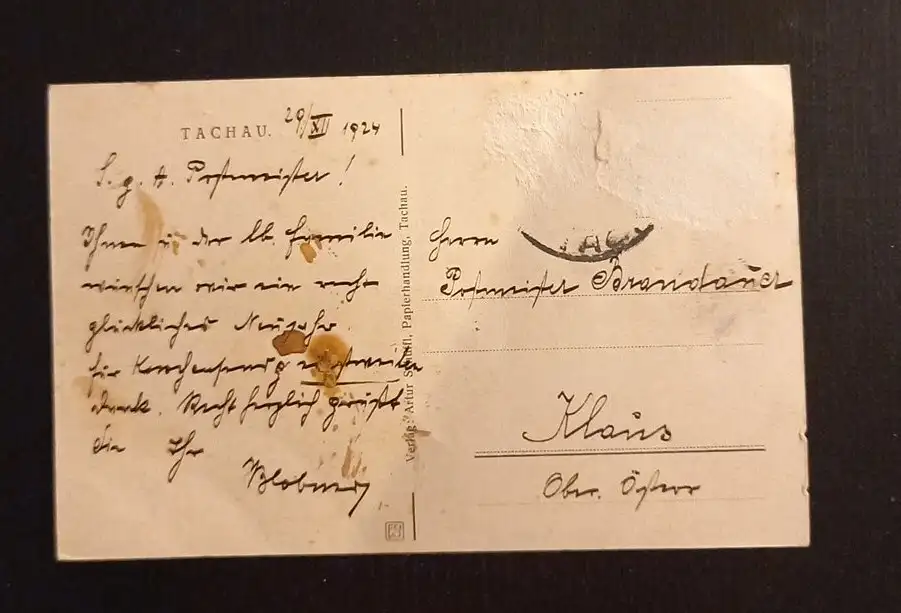 TACHAU. 29/XII 1924
S. g. H. Postmeister!
Ihnen u. der lb. Familie
wünschen wir ein recht
glückliches Neujahr.
für
dank. Recht herzlich grüßt
Sie Ihr
Verlag: Artur Schiffl, Papierhandlung, Tachau.
Herrn
Postmeister Brandauer
Klaus
Ober. Österr